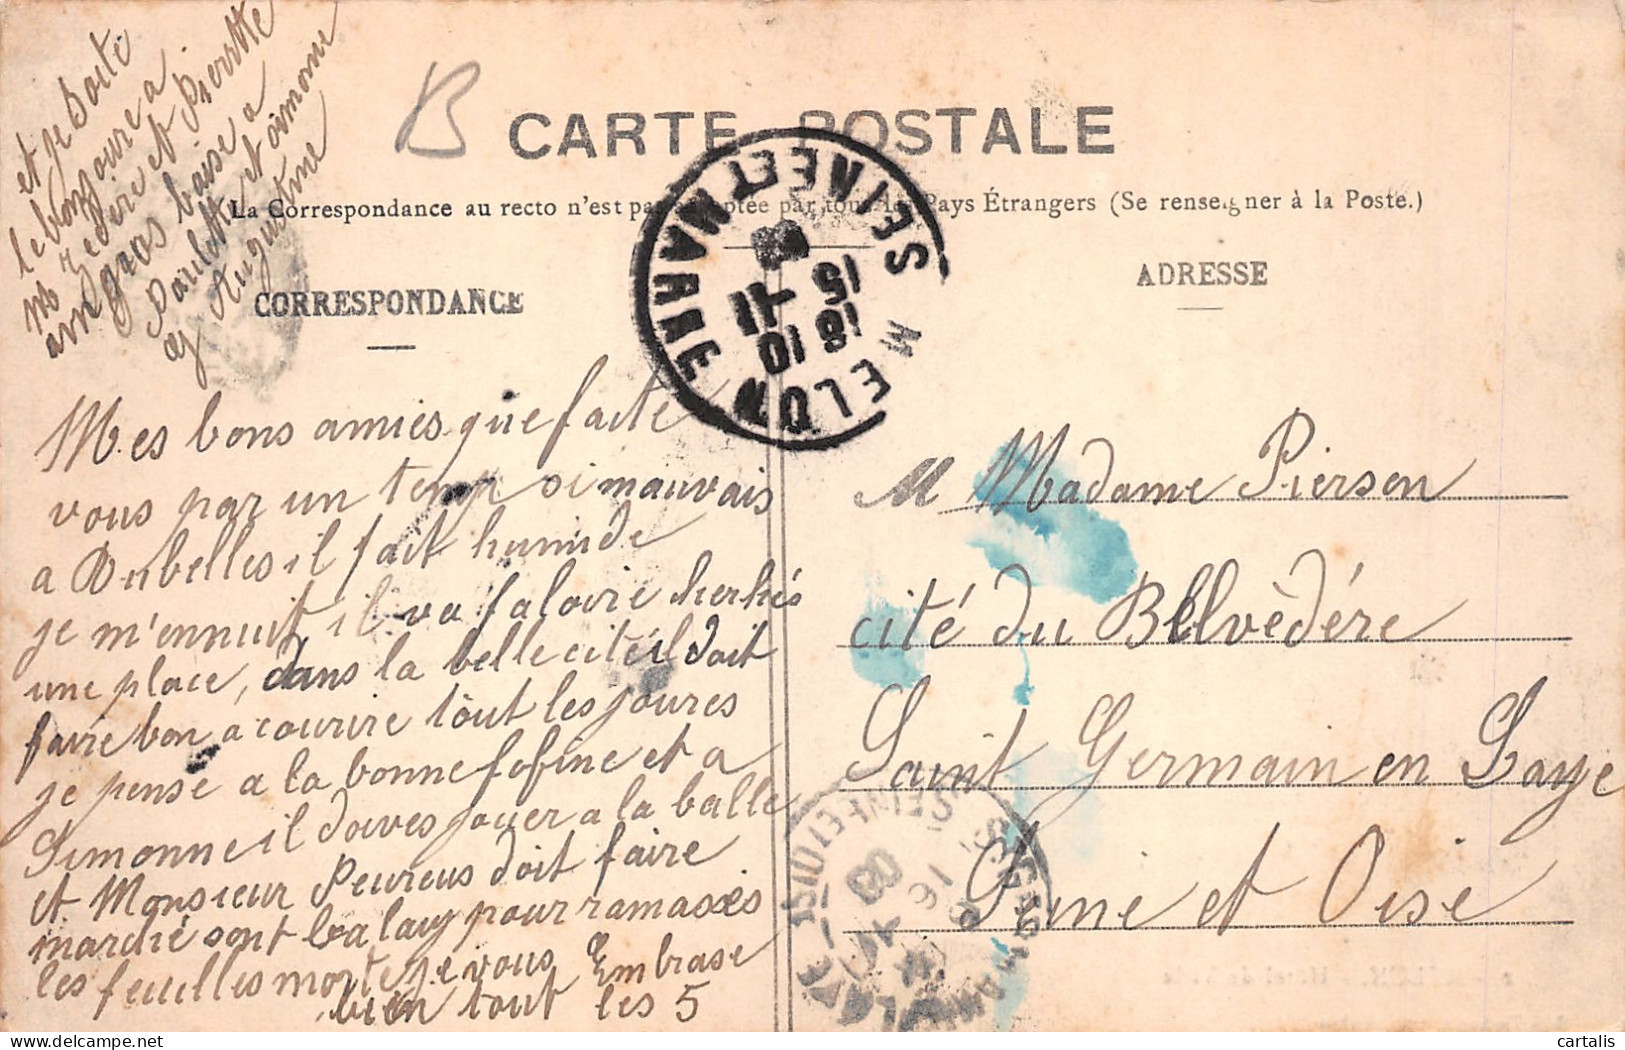 B
CARTE POSTALE
La Correspondance au recto n'est pas acceptée par tous les Pays Étrangers (Se renseigner à la Poste.)
CORRESPONDANCE
ADRESSE
MELUN SEINE ET MARNE
18 10
15 11
Mes bons amies que faite
vous par un temp si mauvais
a Rubelles il fait humide
je m'ennuit il va faloire cherhés
une place, dans la belle cité il doit
faire bon a courire tout les joures
je pense a la bonne fofine et a
Simonne il doives jouer a la balle
et Monsieur Peureus doit faire
marché sont balay pour ramassés
les feuilles morte je vous Embrase
bien tout les 5
et je Boite
le bonjoure a
et Pierette
un gros baise a
Paulette et Simone
Augustine
M Madame Pierson
cité du Bélvèdére
Saint Germain en Laye
Seine et Oise
ST GERMAIN EN LAYE SEINE ET OISE
16
09
cartalis
www.delcampe.net